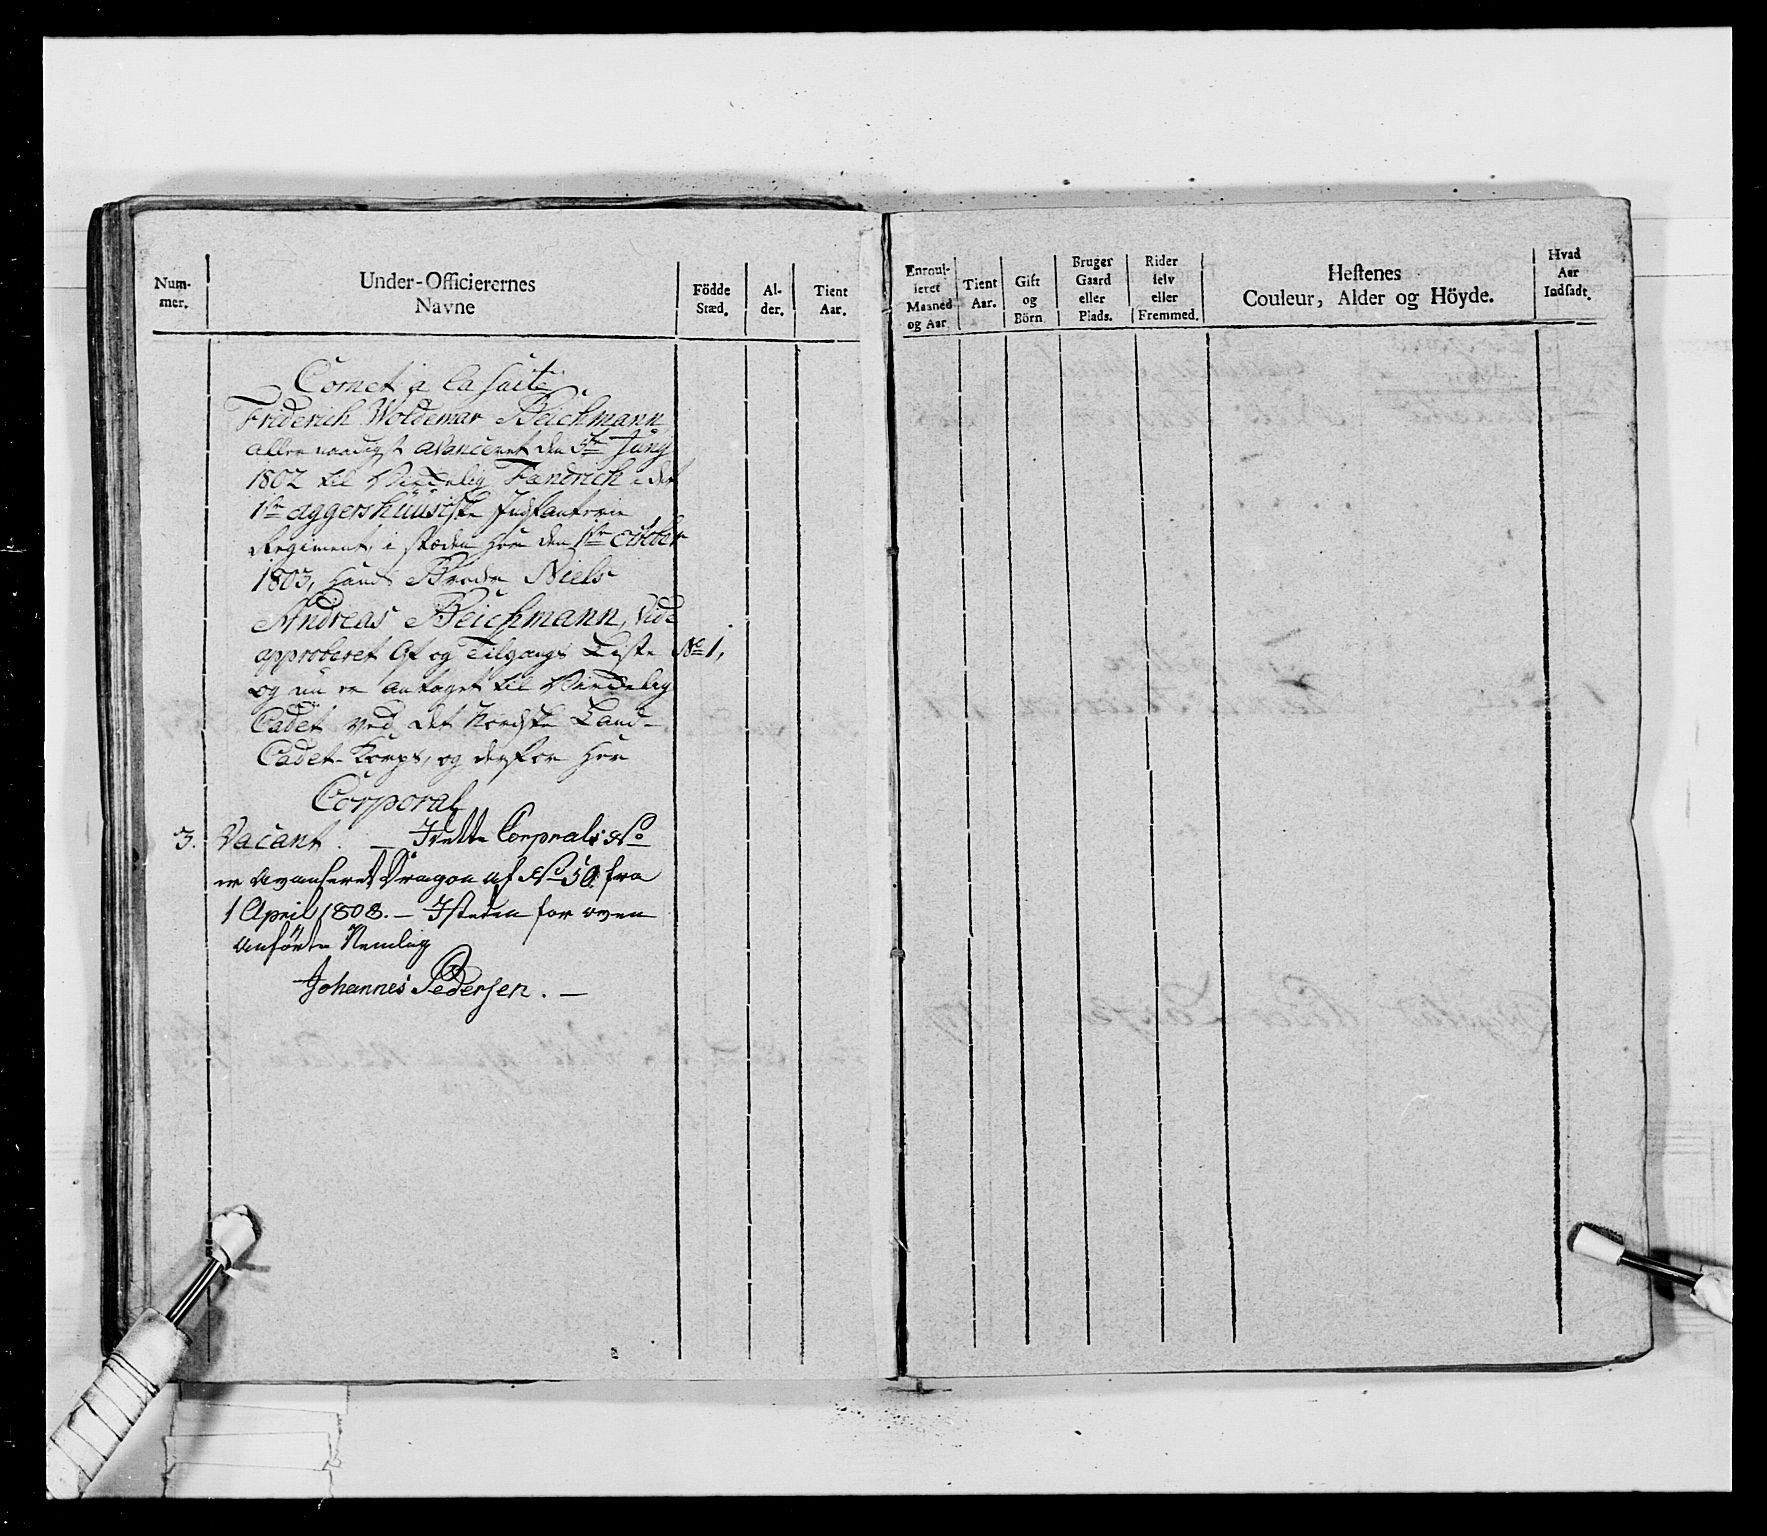 Num-
mer.
Under-Officierernes
Navne
Födde
Stæd.
Al-
der.
Tient
Aar.
Cornet a la Suite
Friderich Woldemar Beichmann
allernaadigst avanceret den 5te Juny
1802 til Virkelig Fændrich i det
1te aggershuusiske Infanterie
Regiment, i stæden for den 1te October
1803, hans Broder Niels
Andreas Beichmann, vide
approberet Af og Tilgangs Liste No 1,
og nu er antaget til Virkelig
Cadet ved det Norske Land-
Cadet-Korps, og derfor her
Corporal
3. Vacant. — I dette Corporals No
er avanseret Dragon af No 50 fra
1 April 1808. — Isteden for oven
anförte Nemlig
Johannes Pedersen. —
Enroul-
leret
Maaned
og Aar
Tient
Aar.
Gift
og
Börn
Bruger
Gaard
eller
Plads.
Rider
selv
eller
Fremmed.
Hestenes
Couleur, Alder og Höyde.
Hvad
Aar
Indsadt.